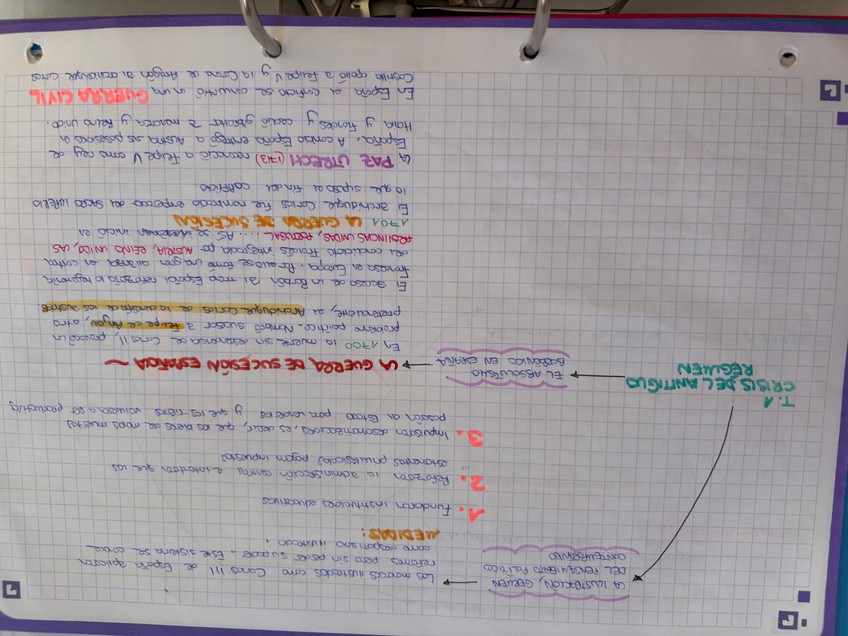 T.1
CRISIS DEL ANTIGUO
RÉGIMEN
LA ILUSTRACIÓN, GERMEN
DEL PENSAMIENTO POLÍTICO
CONTEMPORÁNEO
Los monarcas ilustrados como Carlos III de España aplicaron
reformas pero sin perder su poder. Este sistema se conoce
como despotismo ilustrado.
MEDIDAS:
1. Fundaron instituciones educativas
2. Reforzaron la administración central e intentaron que los
estamentos privilegiados pagaran impuestos
3. Impulsaron desamortizaciones, es decir, que los bienes de manos muertas
pasasen al Estado por venderlos y que las tierras volviesen a ser productivas
EL ABSOLUTISMO
BORBÓNICO EN ESPAÑA
LA GUERRA DE SUCESIÓN ESPAÑOLA
En 1700 la muerte sin descendencia de Carlos II, provocó un
problema político. Nombró sucesor a Felipe de Anjou, otro
pretendiente, el Archiduque Carlos de la dinastía de los Austria
El ascenso de un Borbón al trono Español reforzaba la hegemonía
francesa en Europa. Por eso se formó una gran alianza en contra
del candidato francés integrada por AUSTRIA, REINO UNIDO, LAS
PROVINCIAS UNIDAS, PORTUGAL.... Así se inició en
1701 LA GUERRA DE SUCESIÓN
El archiduque Carlos fue nombrado emperador del SACRO IMPERIO
lo que supuso el fin del conflicto
LA PAZ UTRECH (1713) reconoció a Felipe V como rey de
España. A cambio España entregó a Austria sus posesiones en
Italia y Flandes y cedió Gibraltar y Menorca a Reino Unido.
En España el conflicto se convirtió en una GUERRA CIVIL
Castilla apoyó a Felipe V y la Corona de Aragón al archiduque Carlos